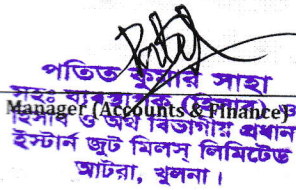 পতিত কুমার সাহা
সহঃ ব্যবস্থাপক (হিসাব) ও
Manager (Accounts & Finance)
হিসাব ও অর্থ বিভাগীয় প্রধান
ইস্টার্ন জুট মিলস্ লিমিটেড
আটরা, খুলনা।